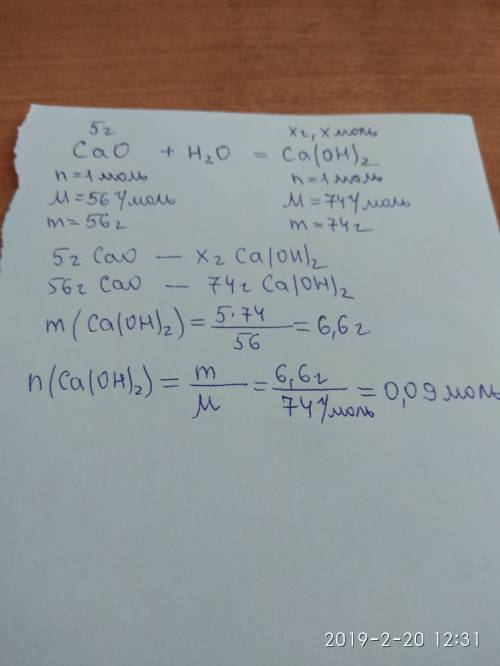 5г хг, х моль
CaO + H₂O = Ca(OH)₂
n=1 моль n=1 моль
M=56 г/моль M=74 г/моль
m=56г m=74г
5г CaO — хг Ca(OH)₂
56г CaO — 74г Ca(OH)₂
m(Ca(OH)₂) = 5·74/56 = 6,6г
n(Ca(OH)₂) = m/M = 6,6г/74 г/моль = 0,09 моль
2019-2-20 12:31